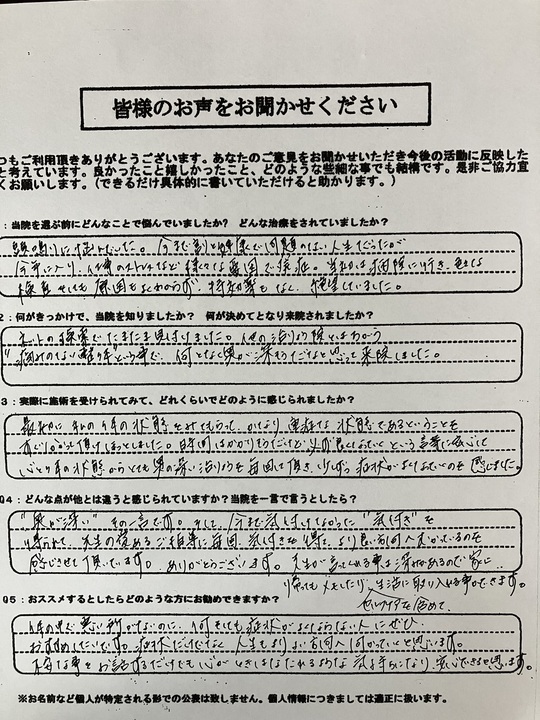 皆様のお声をお聞かせください
つもご利用頂きありがとうございます。あなたのご意見をお聞かせいただき今後の活動に反映した
と考えています。良かったこと嬉しかったこと、どのような些細な事でも結構です。是非ご協力宜
くお願いします。(できるだけ具体的に書いていただけると助かります。)
:当院を選ぶ前にどんなことで悩んでいましたか? どんな治療をされていましたか?
今まで割と健康で問題のない人生だったが
今年に入り、仕事のストレスなど様々な要因で発症。当初は病院に行き、色々な
検査をしても原因もよくわからず、特効薬もなく、絶望していました。
2:何がきっかけで、当院を知りましたか? 何が決めてとなり来院されましたか?
ネットの検索でたまたま見付けました。他の治りょう院とはちがう
何となく奥が深そうだなと思って来院しました。
3:実際に施術を受けられてみて、どれくらいでどのように感じられましたか?
最初に私の体の状態をみてもらって、かなり重症な状態であるということを
ほっとしました。時間はかかりそうだけど必ず良くなっていくという言葉に安心して
症状がよくなっていくのを感じました。
Q4:どんな点が他とは違うと感じられていますか?当院を一言で言うとしたら?
"奥が深い" その一言です。そして、今まで気付けてなかった "気付き" を
得られて、先生の愛あるご指導に毎回、気付きを得て、より良い方向へ向かっているのを
感じさせて頂いています。ありがとうございます。先生が言ってくれる事は深みがあるので家に
帰ってもメモしたり、生活に取り入れる事ができます。
セルフケアを含めて、
Q5:おススメするとしたらどのような方にお勧めできますか?
体の中で悪い所がないのに、何をしても症状がよくならない人にぜひ
おすすめしたいです。症状だけでなく、人生もより良い方向へ向かっていくと思います。
気持ちになり、安心できると思います。
※お名前など個人が特定される形での公表は致しません。個人情報につきましては適正に扱います。